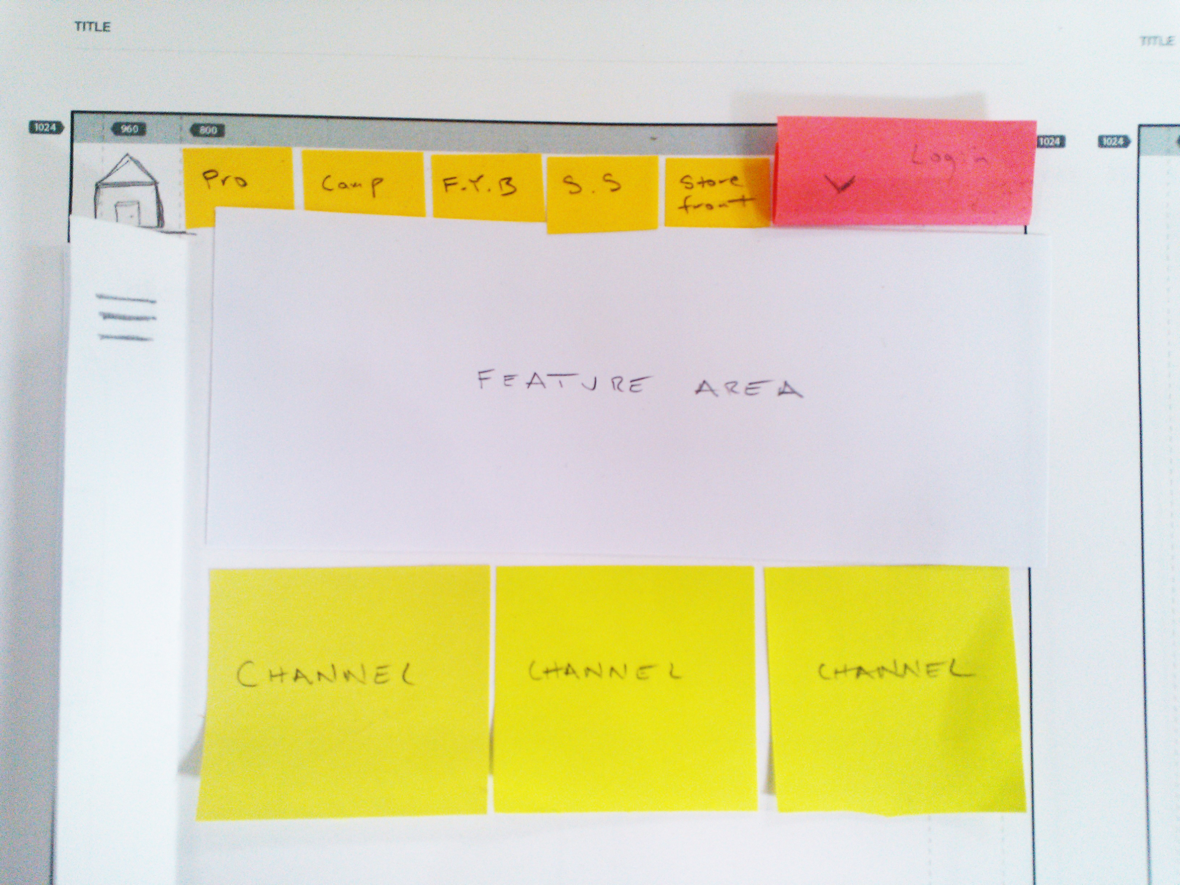 TITLE
TITLE
1024
960
800
1024
1024
Pro
Camp
F.Y.B
S.S
Store
front
Login
FEATURE AREA
CHANNEL
CHANNEL
CHANNEL